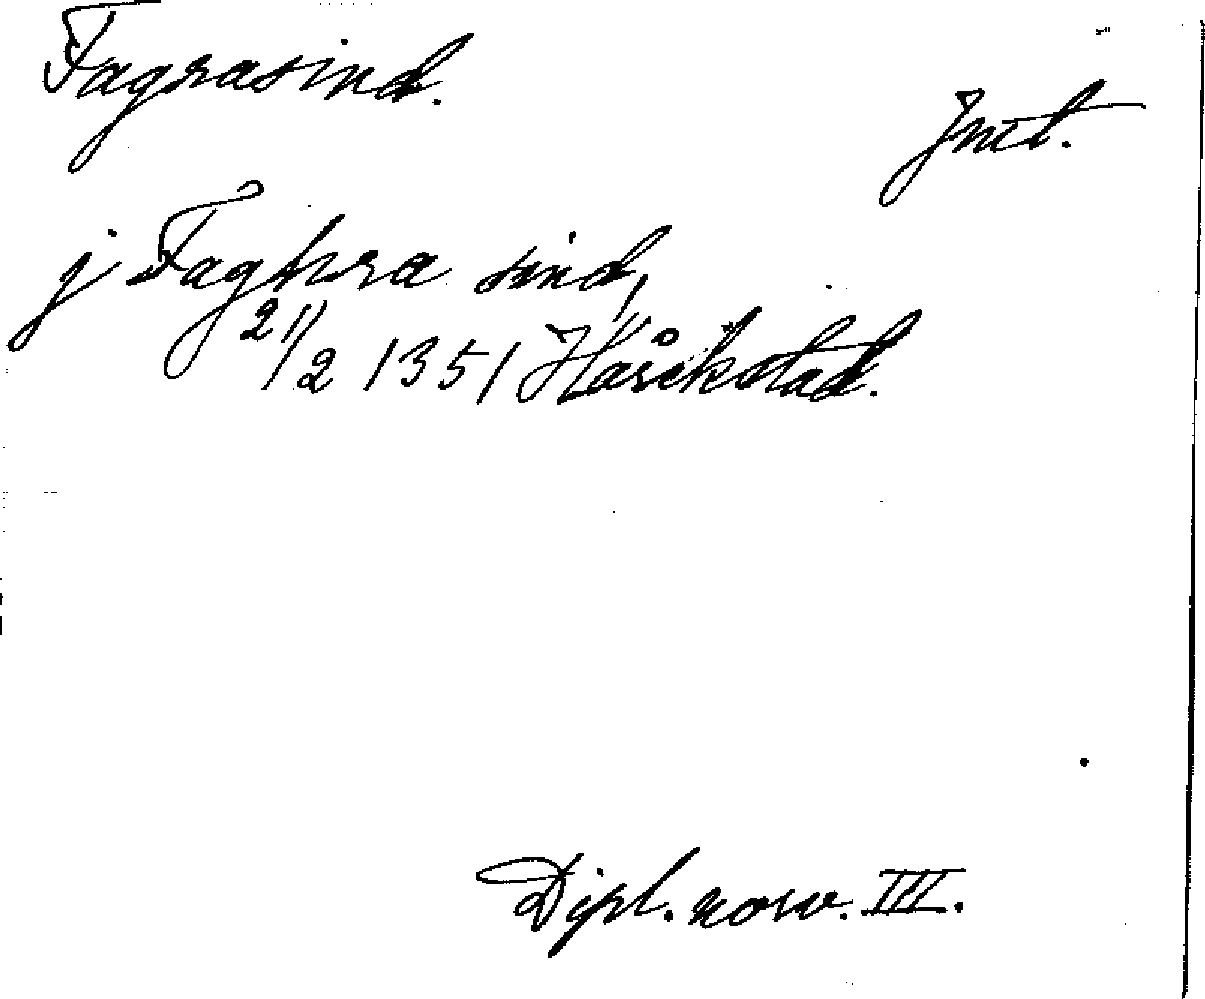 Fagrasind.
Jmt.
j Faghra sind,
21/2 1351 Håsikstad.
Dipl. norv. III.